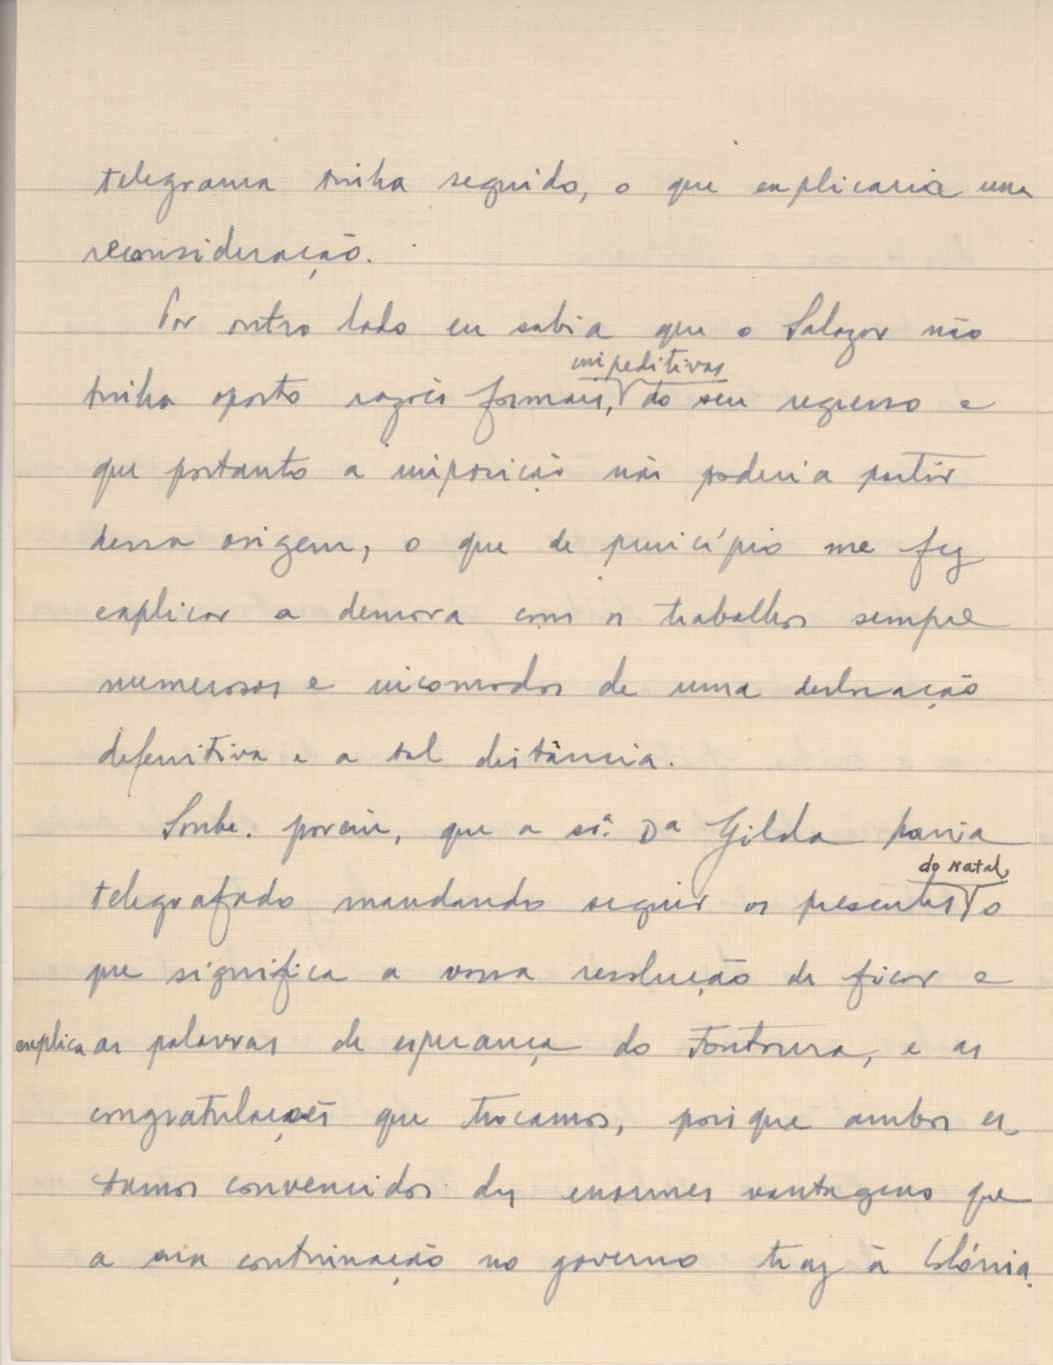 telegrama tinha seguido, o que explicaria uma
reconsideração.
Por outro lado eu sabia que o Salazar não
impeditivas
tinha oposto razões formais, do seu regresso e
que portanto a imposição não poderia partir
dessa origem, o que de princípio me fez
explicar a demora com os trabalhos sempre
numerosos e incomodos de uma deslocação
definitiva e a tal distância.
Soube. porém, que a srª. Dª Gilda havia
do Natal,
telegrafado mandando seguir os presentes o
que significa a vossa resolução de ficar e
explica as palavras de esperança do Fontoura, e as
congratulações que trocamos, porque ambos es
tamos convencidos das enormes vantagens que
a sua continuação no governo traz à Colónia.